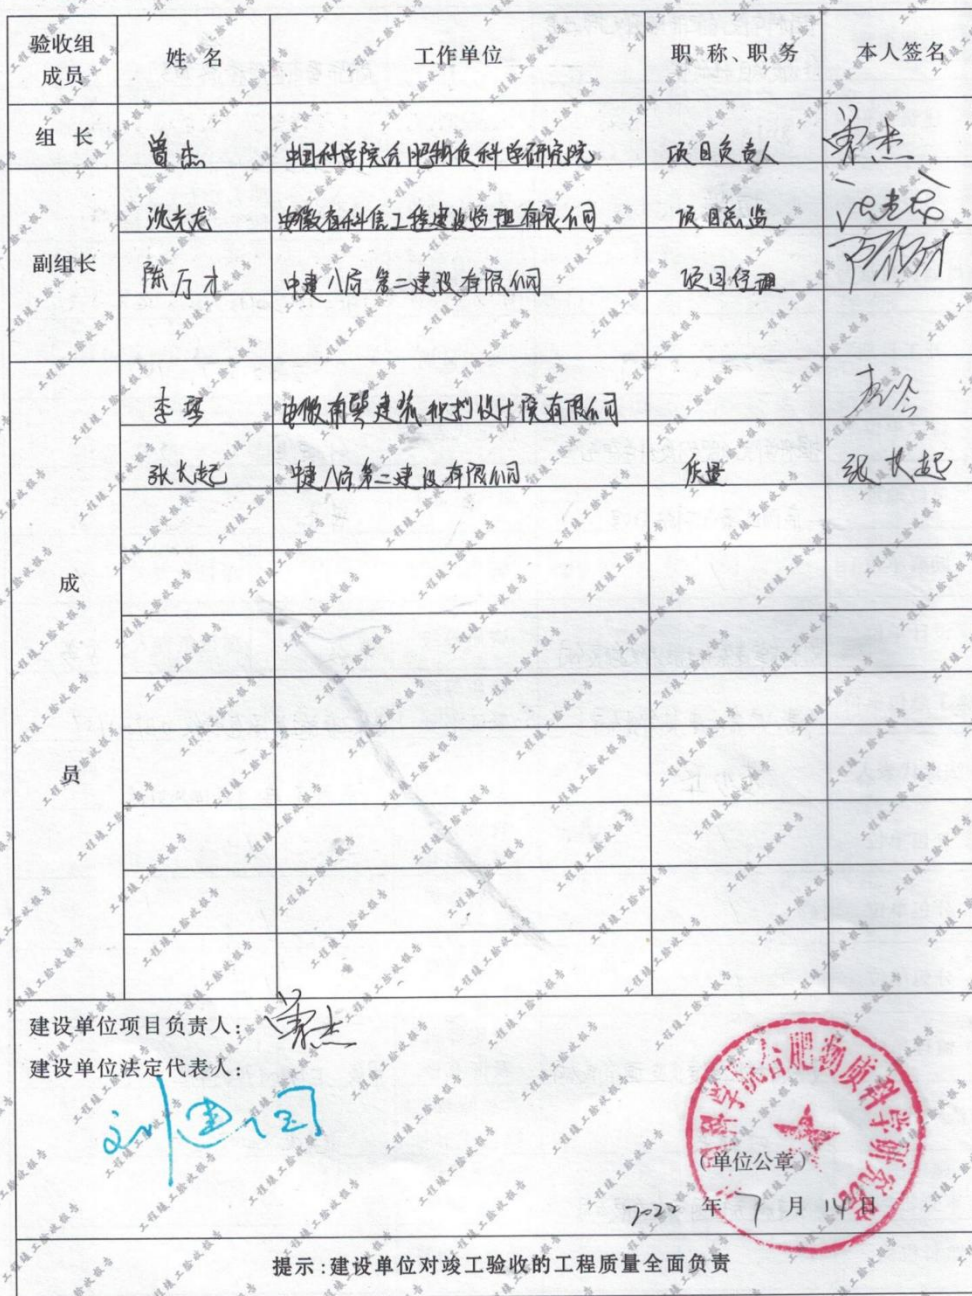 验收组成员 姓名 工作单位 职称、职务 本人签名
组长 曾杰 中国科学院合肥物质科学研究院 项目负责人 曾杰
副组长
沈光龙 安徽省科信工程建设监理有限公司 项目总监
陈厅才 中建八局第二建设有限公司 项目经理
成员
李琴
张长起 中建八局第二建设有限公司 质量 张长起
建设单位项目负责人：曾杰
建设单位法定代表人：
中国科学院合肥物质科学研究院
（单位公章）
2022 年 7 月 14 日
提示：建设单位对竣工验收的工程质量全面负责
工程竣工验收报告